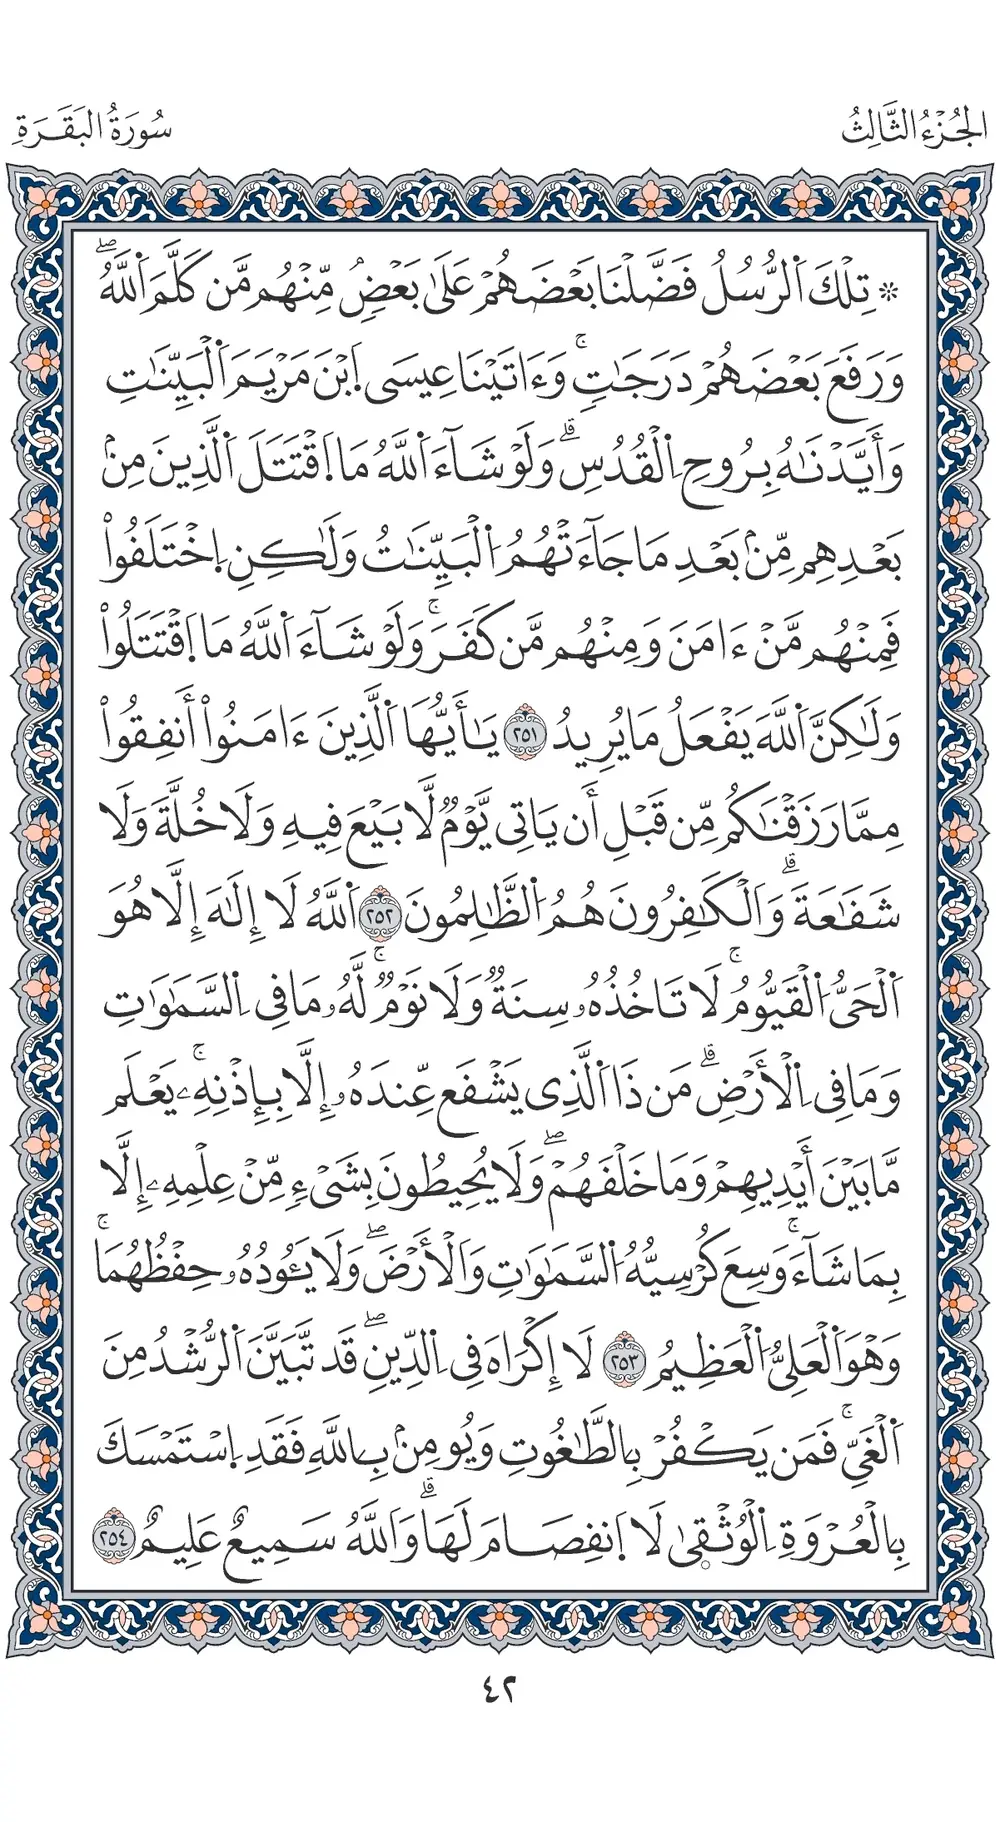 الجُزْءُ الثَّالِثُ
سُورَةُ البَقَرَةِ
۞ تِلْكَ اَ۬لرُّسُلُ فَضَّلْنَا بَعْضَهُمْ عَلَىٰ بَعْضٖ مِّنْهُم مَّن كَلَّمَ اَ۬للَّهُۖ
وَرَفَعَ بَعْضَهُمْ دَرَجَٰتٖۚ وَءَاتَيْنَا عِيسَى اَ۪بْنَ مَرْيَمَ اَ۬لْبَيِّنَٰتِ
وَأَيَّدْنَٰهُ بِرُوحِ اِ۬لْقُدُسِۗ وَلَوْ شَآءَ اَ۬للَّهُ مَا اَ۪قْتَتَلَ اَ۬لَّذِينَ مِنۢ
بَعْدِهِم مِّنۢ بَعْدِ مَا جَآءَتْهُمُ اُ۬لْبَيِّنَٰتُ وَلَٰكِنِ اِ۪خْتَلَفُواْ
فَمِنْهُم مَّنْ ءَامَنَ وَمِنْهُم مَّن كَفَرَۚ وَلَوْ شَآءَ اَ۬للَّهُ مَا اَ۪قْتَتَلُواْ
وَلَٰكِنَّ اَ۬للَّهَ يَفْعَلُ مَا يُرِيدُ ٢٥١ يَٰأَيُّهَا اَ۬لَّذِينَ ءَامَنُواْ أَنفِقُواْ
مِمَّا رَزَقْنَٰكُم مِّن قَبْلِ أَن يَاتِيَ يَوْمٞ لَّا بَيْعَ فِيهِ وَلَا خُلَّةَ وَلَا
شَفَٰعَةَۗ وَالْكَٰفِرُونَ هُمُ اُ۬لظَّٰلِمُونَ ٢٥٢ اَ۬للَّهُ لَا إِلَٰهَ إِلَّا هُوَ
اَ۬لْحَيُّ اُ۬لْقَيُّومُۚ لَا تَاخُذُهُۥ سِنَةٞ وَلَا نَوْمٞۚ لَّهُۥ مَا فِي اِ۬لسَّمَٰوَٰتِ
وَمَا فِي اِ۬لْأَرْضِۗ مَن ذَا اَ۬لَّذِي يَشْفَع عِّندَهُۥ إِلَّا بِإِذْنِهِۦۚ يَعْلَم
مَّا بَيْنَ أَيْدِيهِمْ وَمَا خَلْفَهُمْۖ وَلَا يُحِيطُونَ بِشَيْءٖ مِّنْ عِلْمِهِۦ إِلَّا
بِمَا شَآءَۚ وَسِعَ كُرْسِيُّهُ اُ۬لسَّمَٰوَٰتِ وَالْأَرْضَۖ وَلَا يَـُٔودُهُۥ حِفْظُهُمَاۚ
وَهْوَ اَ۬لْعَلِيُّ اُ۬لْعَظِيمُ ٢٥٣ لَا إِكْرَاهَ فِي اِ۬لدِّينِۖ قَد تَّبَيَّنَ اَ۬لرُّشْدُ مِنَ
اَ۬لْغَيِّۚ فَمَن يَكْفُرْ بِالطَّٰغُوتِ وَيُومِنۢ بِاللَّهِ فَقَدِ اِ۪سْتَمْسَكَ
بِالْعُرْوَةِ اِ۬لْوُثْقۭىٰ لَا اَ۪نفِصَامَ لَهَاۗ وَاللَّهُ سَمِيعٌ عَلِيمٌ ٢٥٤
٤٢